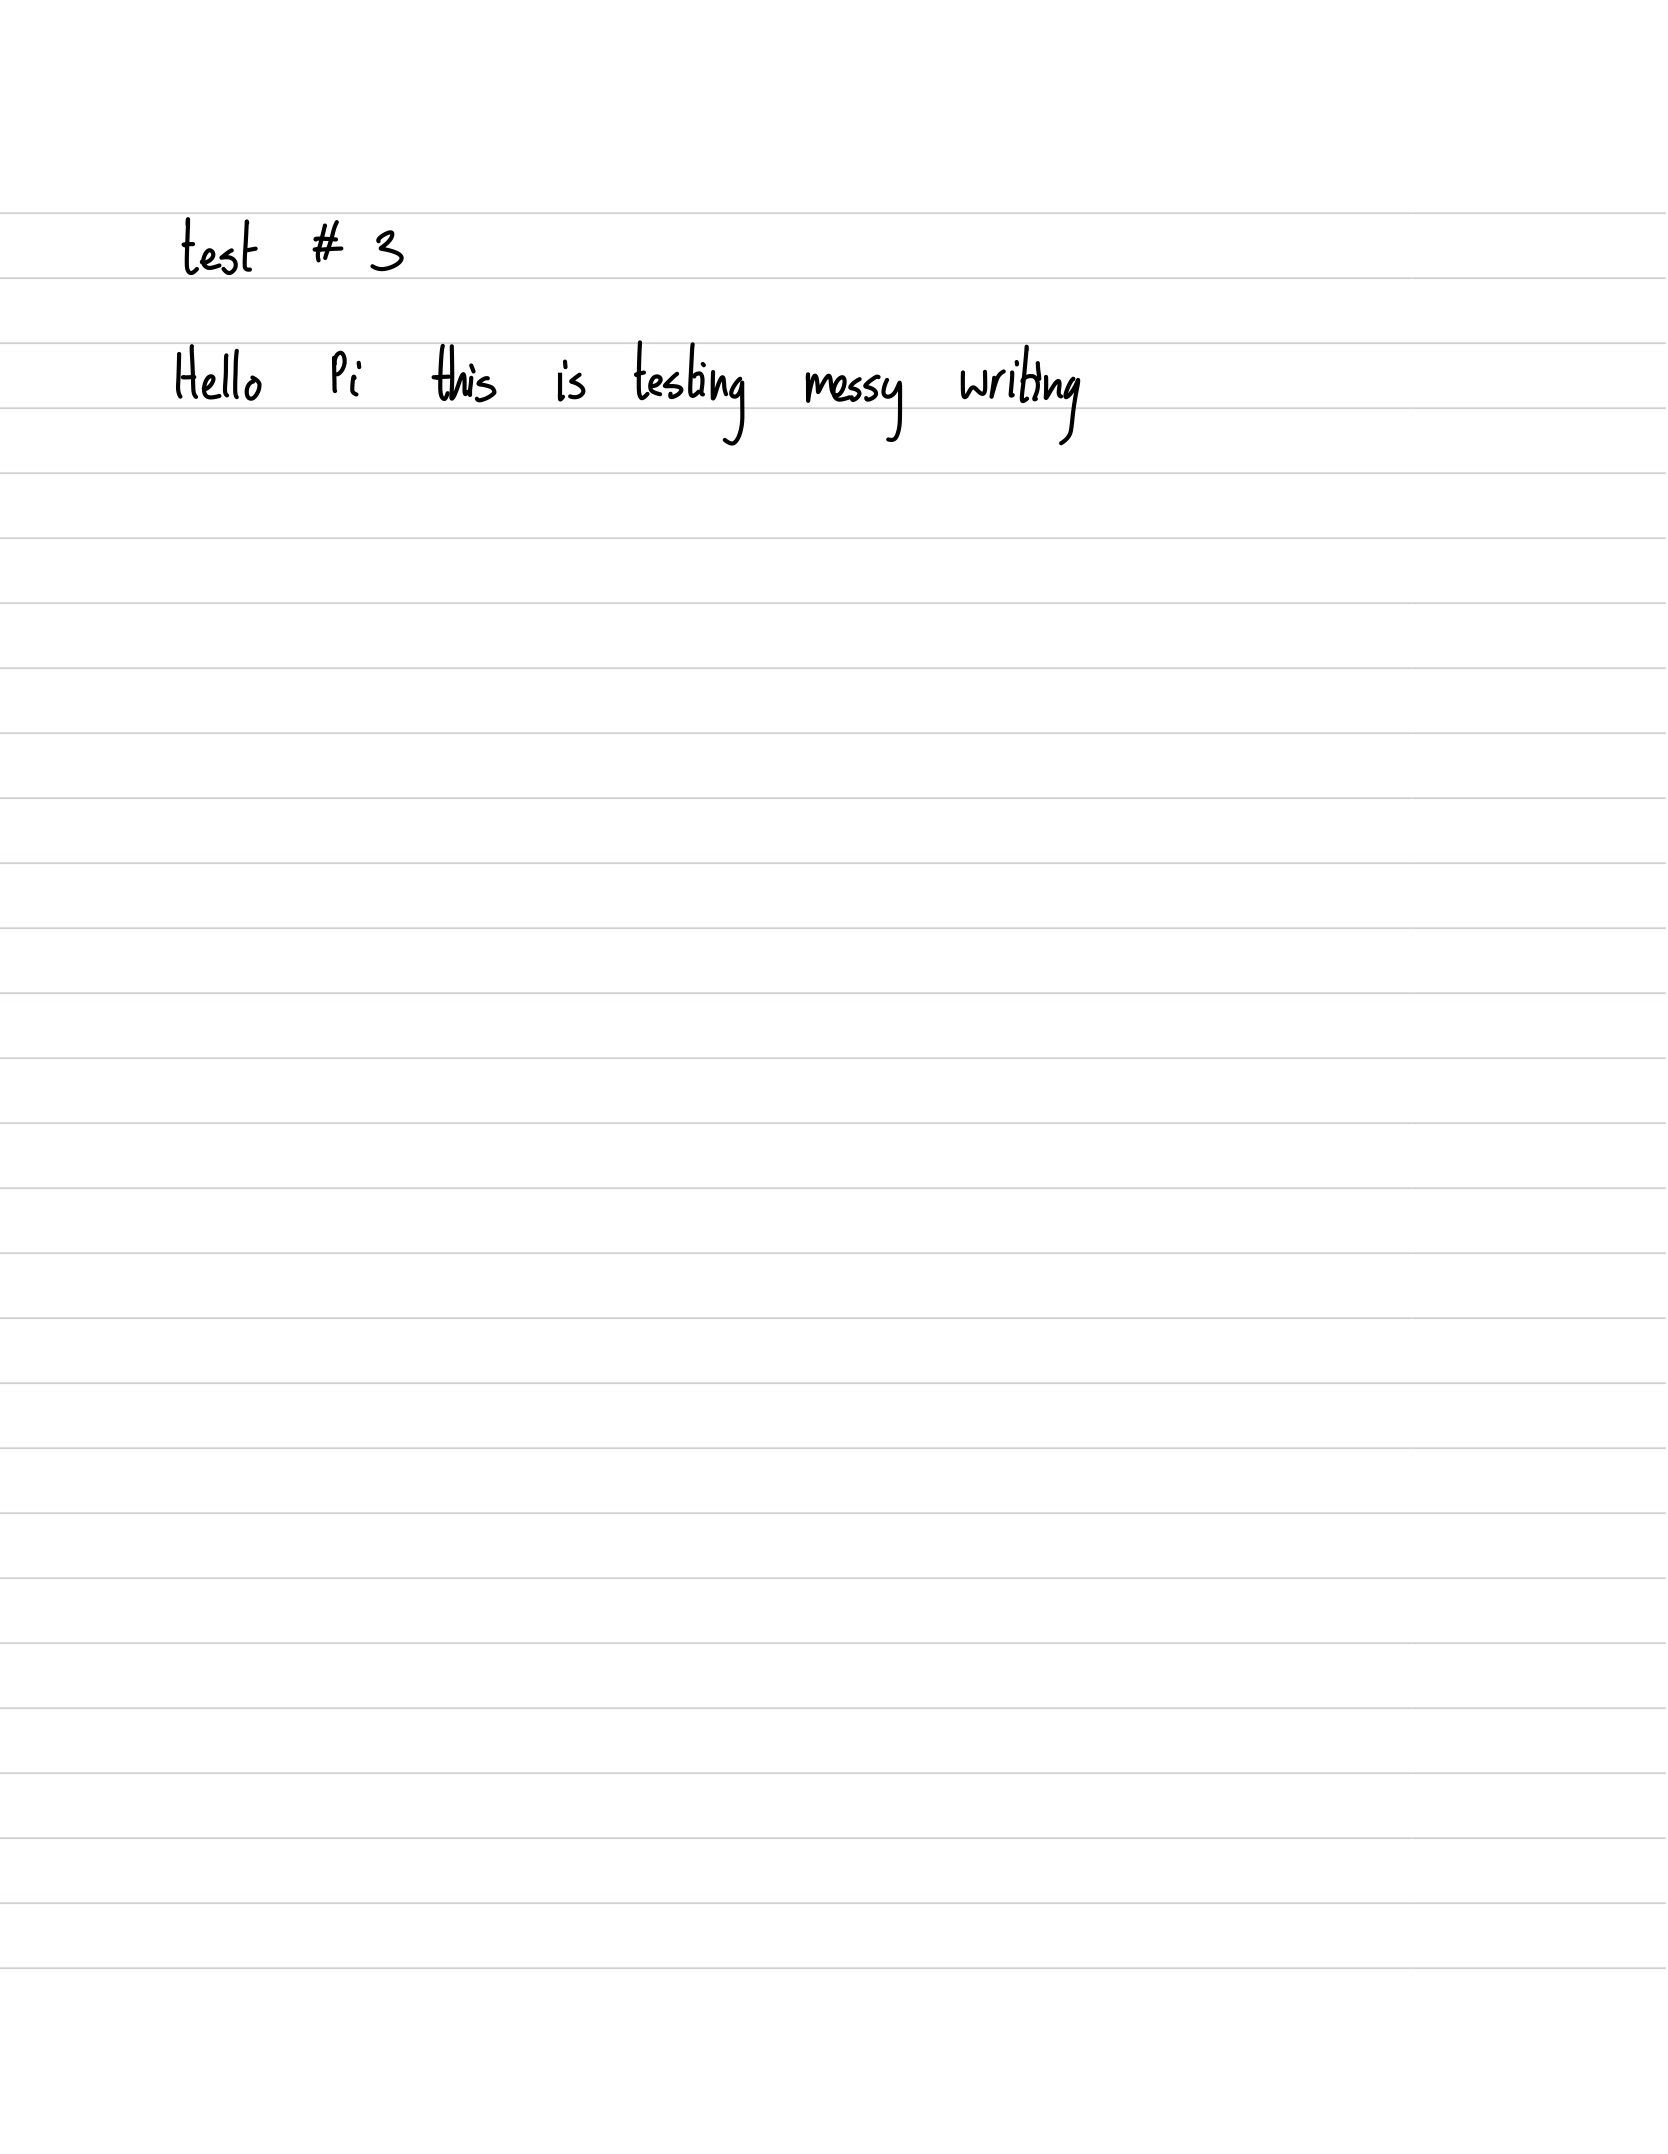 test # 3
Hello Pi this is testing messy writing